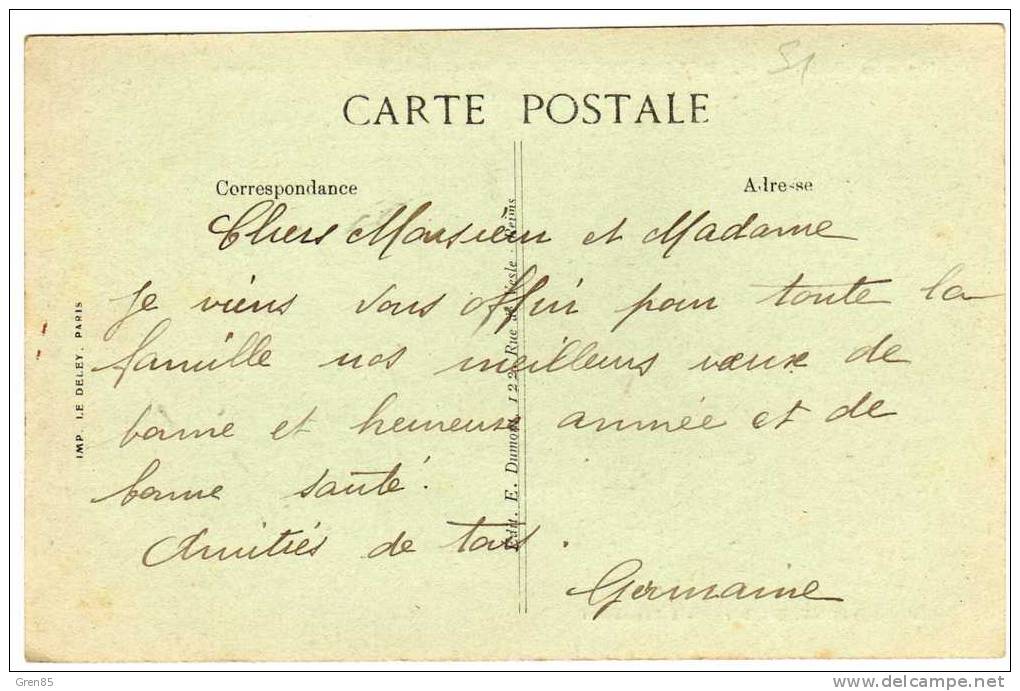 51
CARTE POSTALE
Correspondance
Adresse
Chers Monsieur et Madame
je viens vous offrir pour toute la
famille nos meilleurs vœux de
bonne et heureuse année et de
bonne santé.
Amitiés de tous.
Germaine
IMP. LE DELEY, PARIS
Edit. E. Dumont, 122, Rue de Vesle - Reims
Gren85
www.delcampe.net